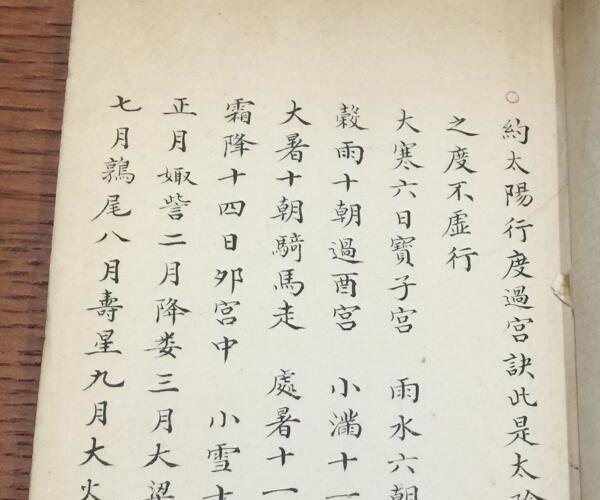 約太陽行度過宮訣此是太陰
之度不虛行
大寒六日寶子宮 雨水六朝
穀雨十朝過酉宮 小滿十一
大暑十朝騎馬走 處暑十一
霜降十四日夘宮中 小雪十
正月娵訾二月降婁三月大梁
七月鶉尾八月壽星九月大火